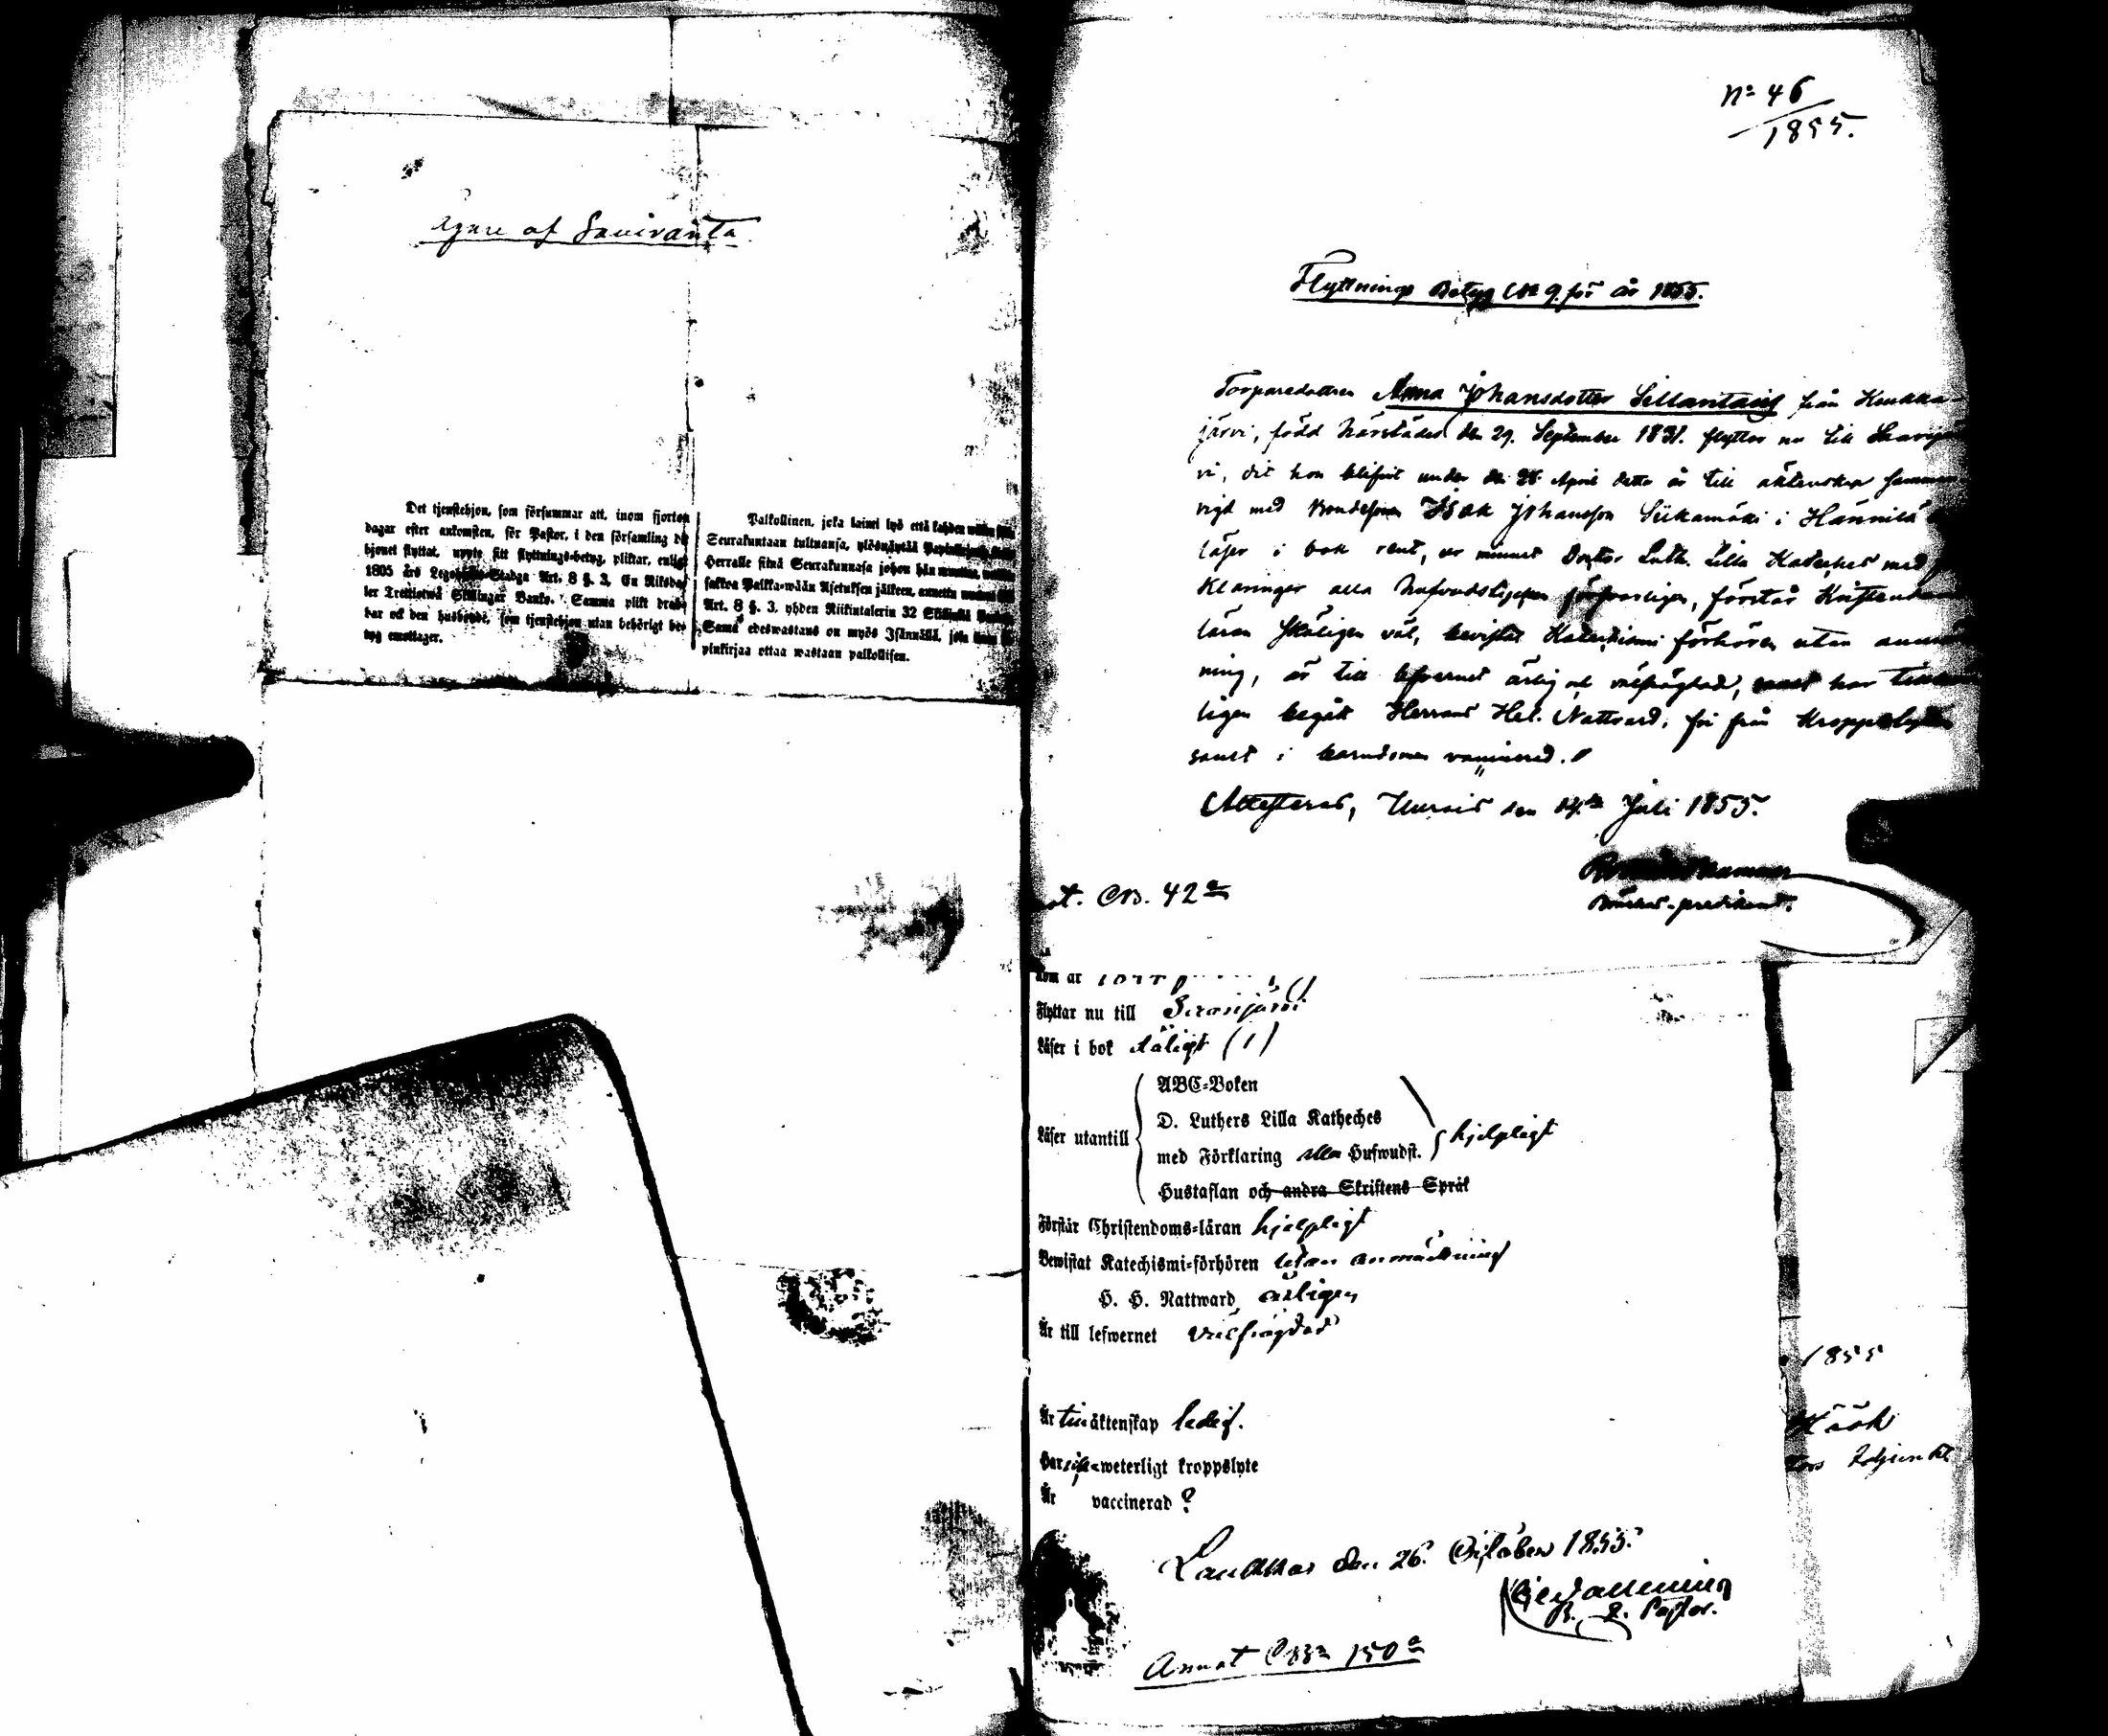 af Saviranta
Det tjenstehjon, som försummar att, inom fjorton
dagar efter ankomsten, för Pastor, i den församling dit
hjonet flyttat, uppte sitt flyttnings-betyg, pliktar, enligt
1805 års Stadga Art. 8 §. 3, En Riksda-
ler Trettiotwå Skillingar Banko. Samma plikt drab-
bar ock den husbonde, som tjenstehjon utan behörigt be-
tyg emottager.
Palkollinen, joka laimi lyö että kahden
Seurakuntaan tultuansa, ylösnäytää
Herralle siinä Seurakunnasa johon hän
sakkoa Palka-wään Asetuksen jälkeen, annettu
Art. 8 §. 3. yhden Riikintalerin 32 Skillinkiä
Sama edeswastaus on myös Isännällä, joka
pinkirjaa ottaa wastaan palkollisen.
No 46
1855.
Flyttnings Betyg No 9 för år 1855.
Torparedottren Anna Johansdotter Sillantaus från Koukka-
järvi, född härstädes den 29. September 1831. flyttar nu till
vi, dit hon blifvit under den 28 April detta år till äktenskap samman
vigd med Bondesonen Isak Johansson Siikamäki i Hännilä
läser i bok rent, ur minnet Doctor Luth. Lilla Kateches med
klaringar alla hufvudstycken försvarligen, förstår Kristendoms
läran skäligen väl, bevistat Katechismi förhören utan anmärk
ning, är till lefvernet ärlig och välfrägdad, har
ligen begått Herrans Hel. Nattvard, fri från kroppslyten
samt i barndomen vaccinerad.
Attesteras, den 14de Juli 1855.
predikant.
CB. 42a
Flyttar nu till
Läser i bok dåligt (1)
Läser utantill
ABC-Boken
D. Luthers Lilla Katheches
med Förklaring alla Hufwudst.
hjelpligt
Hustaflan och andra Skriftens Språk
Förstår Christendoms-läran hjelpligt
Bewistat Katechismi-förhören utan anmärkning
H. H. Nattward årligen
Är till lefwernet välfrägdad
Är till äktenskap ledig.
Har icke weterligt kroppslyte
Är vaccinerad ?
Laukkas den 26. October 1855.
Pastor.
Annot CBn 150a
1855
Höök
Adjunkt